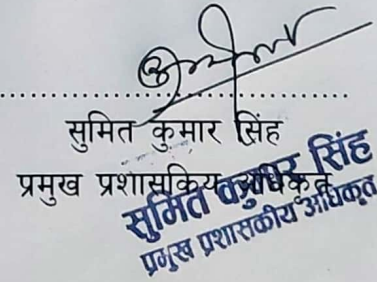 सुमित कुमार सिंह
प्रमुख प्रशासकिय अधिकृत
सुमित कुमार सिंह
प्रमुख प्रशासकीय अधिकृत